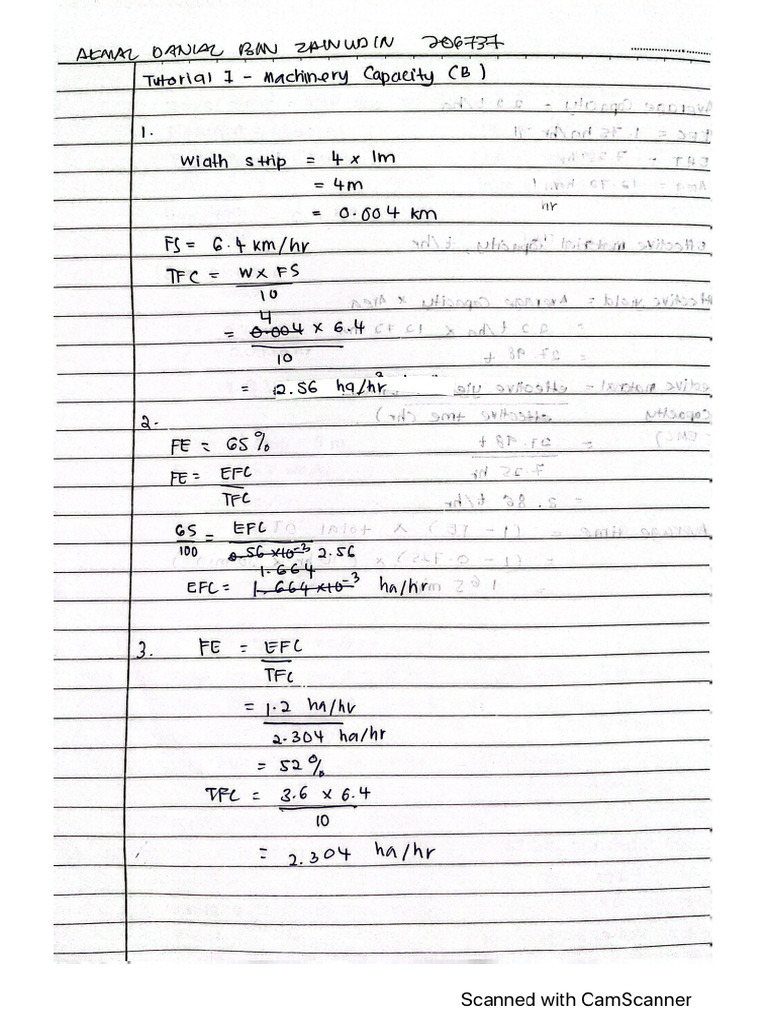 AKMAL DANIAL BIN ZAINUDIN 206737
Tutorial 1 - Machinery Capacity (B)
1.
Width strip = 4 x 1m
= 4m
= 0.004 km
hr
FS = 6.4 km/hr
TFC = W x FS
10
4
= 0.004 x 6.4
10
= 2.56 ha/hr
2.
FE = 65%
FE = EFC
TFC
65 = EFC
100 0.56 x10⁻³ 2.56
1.664
EFC = 1.664 x10⁻³ ha/hr
3. FE = EFC
TFC
= 1.2 ha/hr
2.304 ha/hr
= 52%
TFC = 3.6 x 6.4
10
= 2.304 ha/hr
Scanned with CamScanner